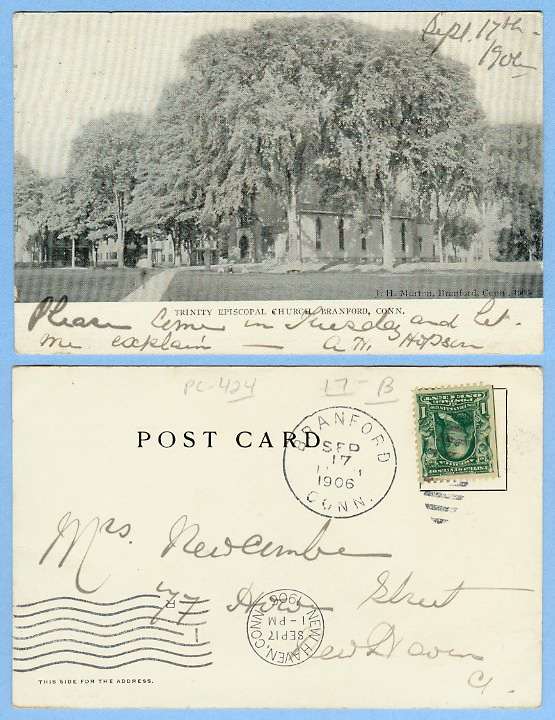 Sept. 17th -
1906
J. H. Morton, Branford, Conn.
TRINITY EPISCOPAL CHURCH, BRANFORD, CONN.
Please come in Tuesday and let
me explain — A. M. Hopson
PC-424 17-B
POST CARD
BRANFORD
SEP
17
1906
CONN.
1
Mrs. Newcombe
77 How Street
New Haven
Ct.
NEW HAVEN, CONN.
SEP 17
1-PM
1906
THIS SIDE FOR THE ADDRESS.